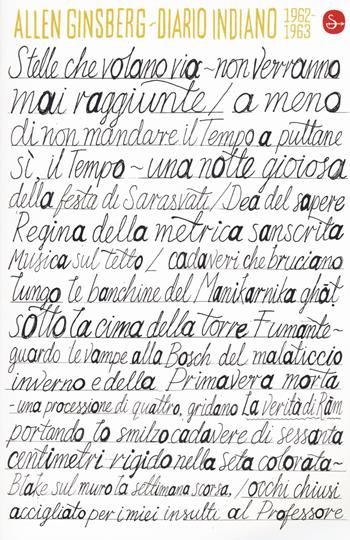 ALLEN GINSBERG - DIARIO INDIANO 1962-
1963
Stelle che volano via ~ non verranno
mai raggiunte / a meno
di non mandare il Tempo a puttane
sì, il Tempo ~ una notte gioiosa
della festa di Sarasvati / Dea del sapere
Regina della metrica sanscrita
Musica sul tetto / cadaveri che bruciano
lungo le banchine del Manikarnika ghat
sotto la cima della torre Fumante ~
guardo le vampe alla Bosch del malaticcio
inverno e della Primavera morta
- una processione di quattro, gridano La verità di Rām
portando lo smilzo cadavere di sessanta
centimetri rigido nella seta colorata ~
Blake sul muro la settimana scorsa, / occhi chiusi
accigliato per i miei insulti al Professore